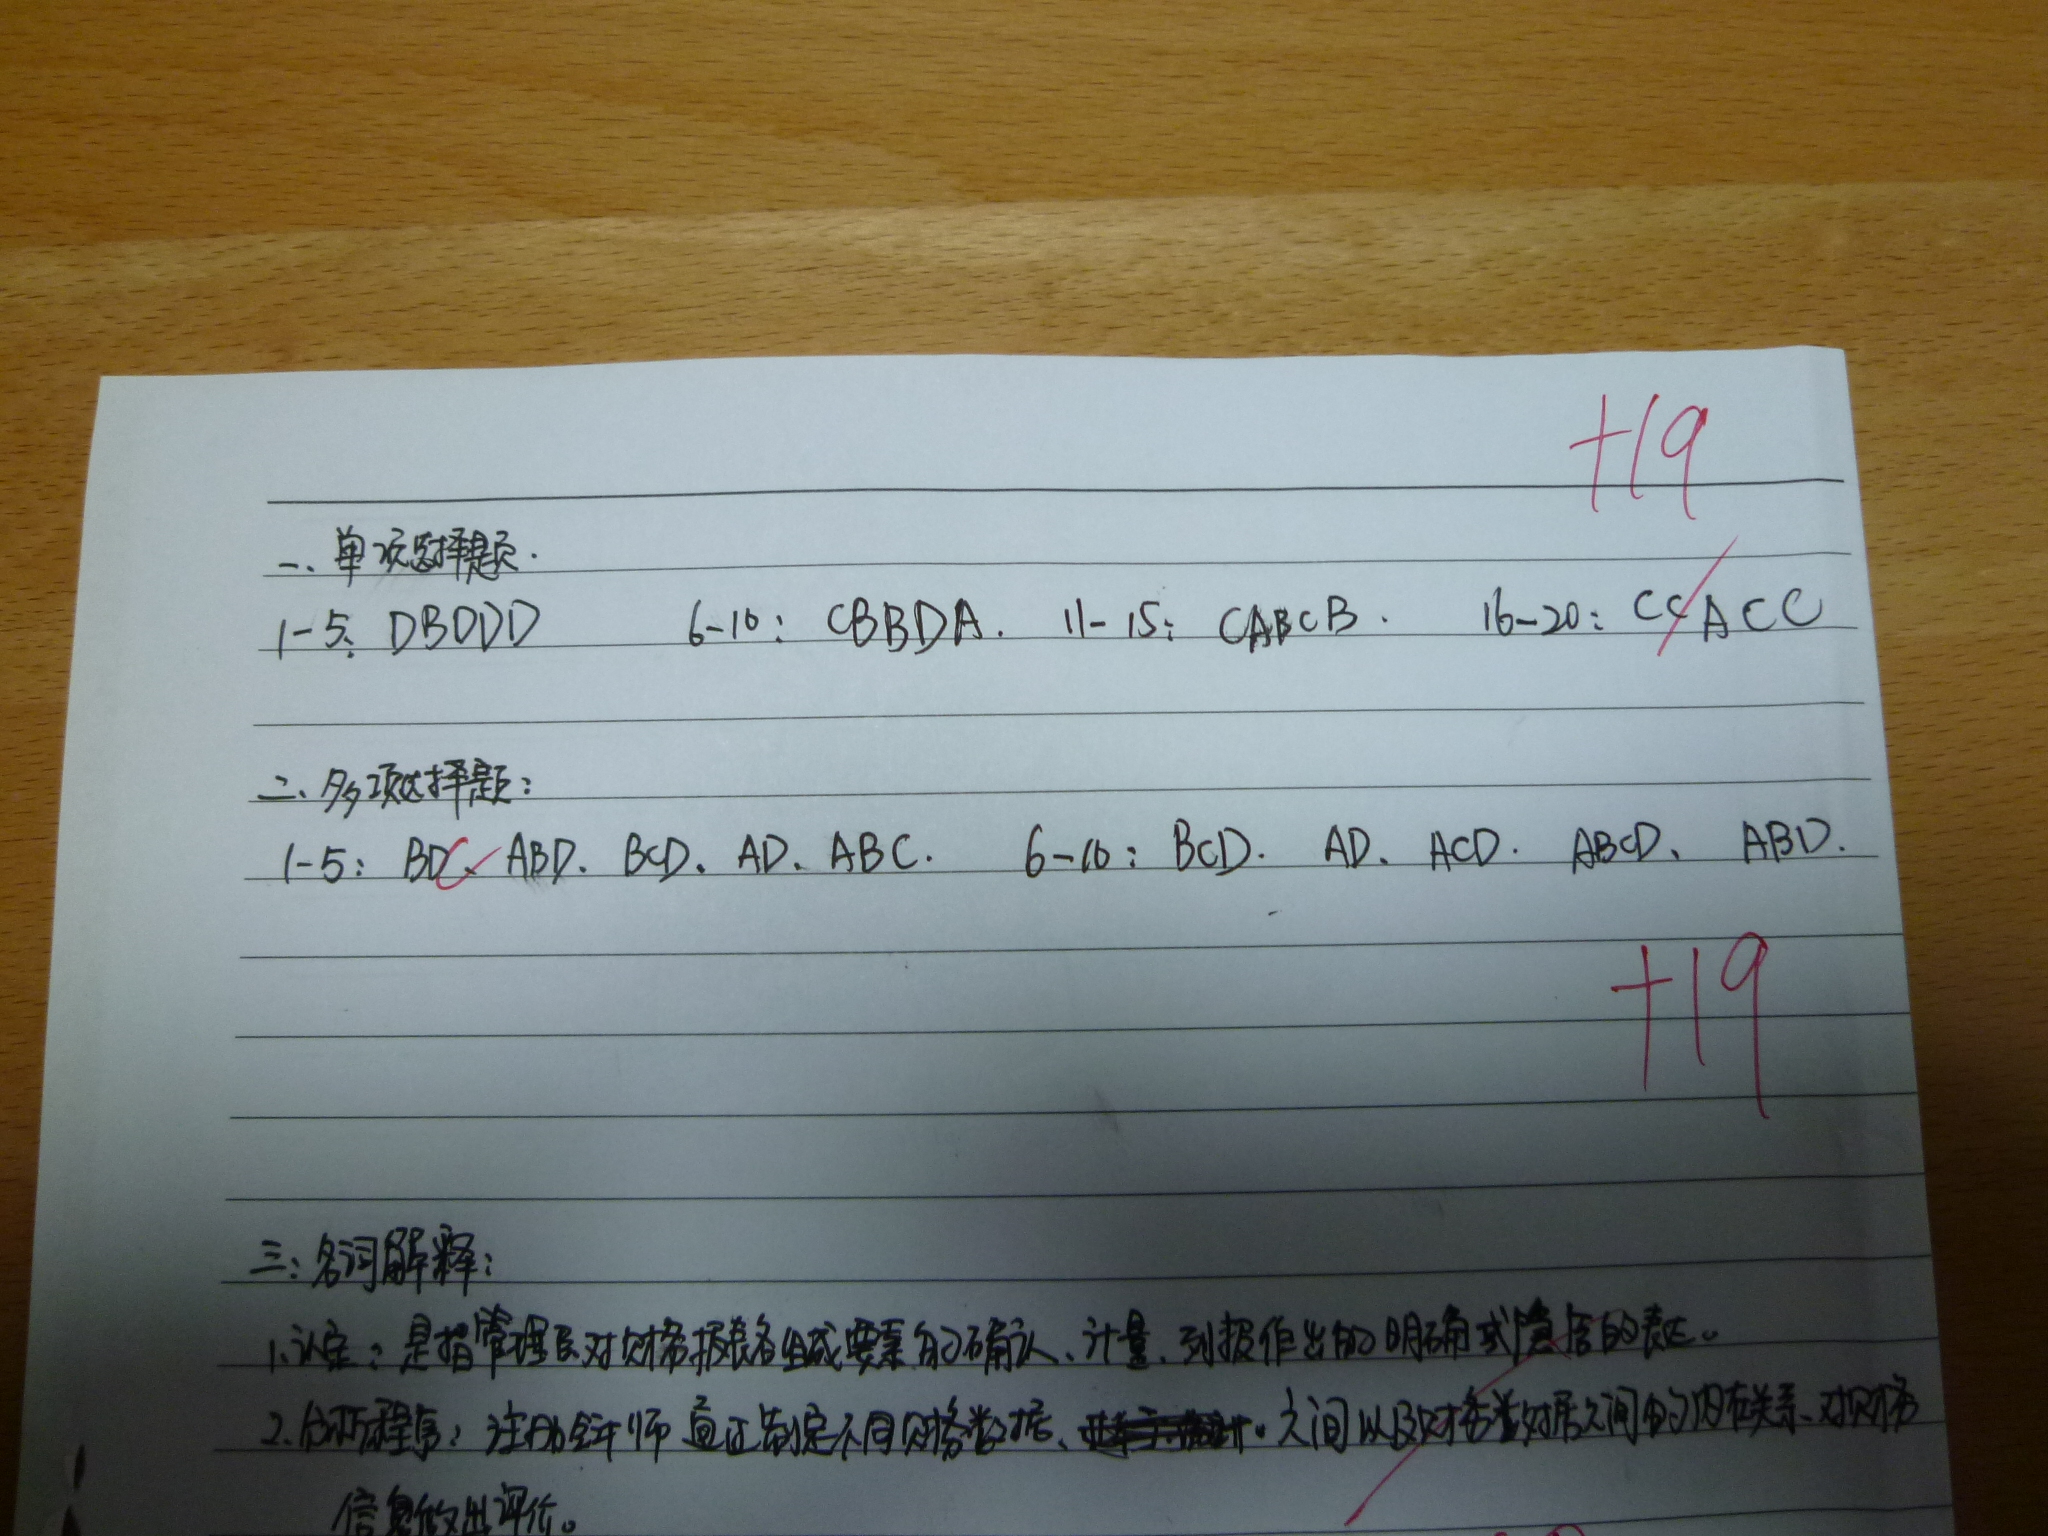 +19
一、单项选择题.
1-5: DBDDD 6-10: CBBDA. 11-15: CABCB. 16-20: CCACC
二、多项选择题:
1-5: BDC、ABD、BCD、AD、ABC. 6-10: BCD. AD、ACD. ABCD、ABD.
+19
三:名词解释:
1.认定:是指管理层对财务报表各组成要素的确认、计量、列报作出的明确或隐含的表达。
2.分析程序:注册会计师通过制定不同财务数据、之间以及财务数据之间的内在关系、对财务
信息做出评价。